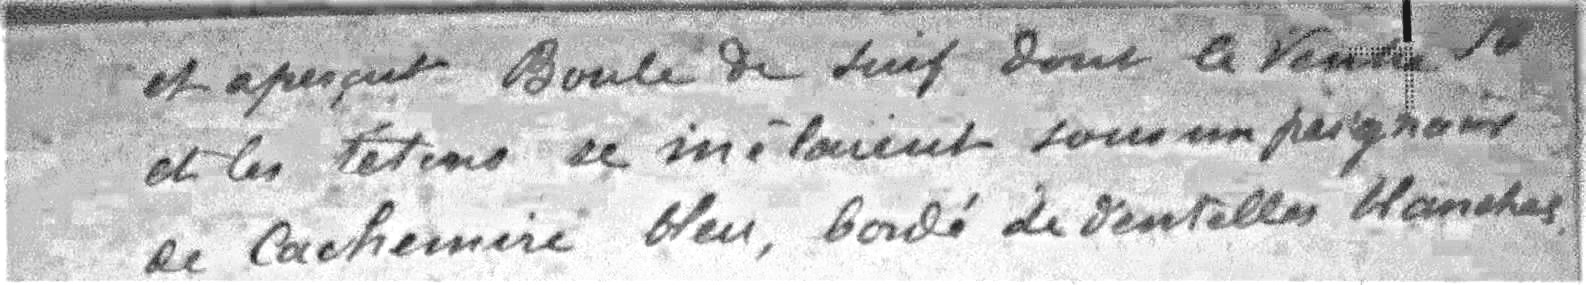 et aperçut Boule de suif dont le Ventre
et les tetons se mêlaient sous un peignoir
de Cachemire bleu, bordé de dentelles blanches.